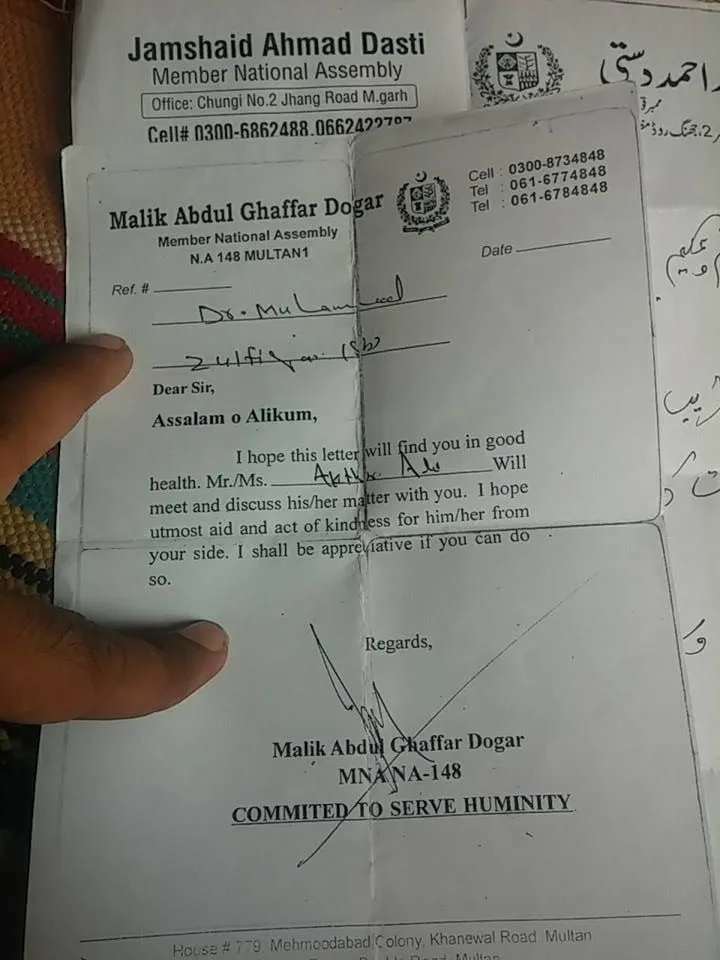 Jamshaid Ahmad Dasti
Member National Assembly
Office: Chungi No.2 Jhang Road M.garh
Cell# 0300-6862488, 0662422787
احمد دستی
Malik Abdul Ghaffar Dogar
Member National Assembly
N.A 148 MULTAN1
Cell : 0300-8734848
Tel : 061-6774848
Tel : 061-6784848
Ref. #
Date
Dr. Muhammad
Dear Sir,
Assalam o Alikum,
I hope this letter will find you in good
health. Mr./Ms. Will
meet and discuss his/her matter with you. I hope
utmost aid and act of kindness for him/her from
your side. I shall be appreciative if you can do
so.
Regards,
Malik Abdul Ghaffar Dogar
MNA NA-148
COMMITED TO SERVE HUMINITY
House # 779, Mehmoodabad Colony, Khanewal Road, Multan